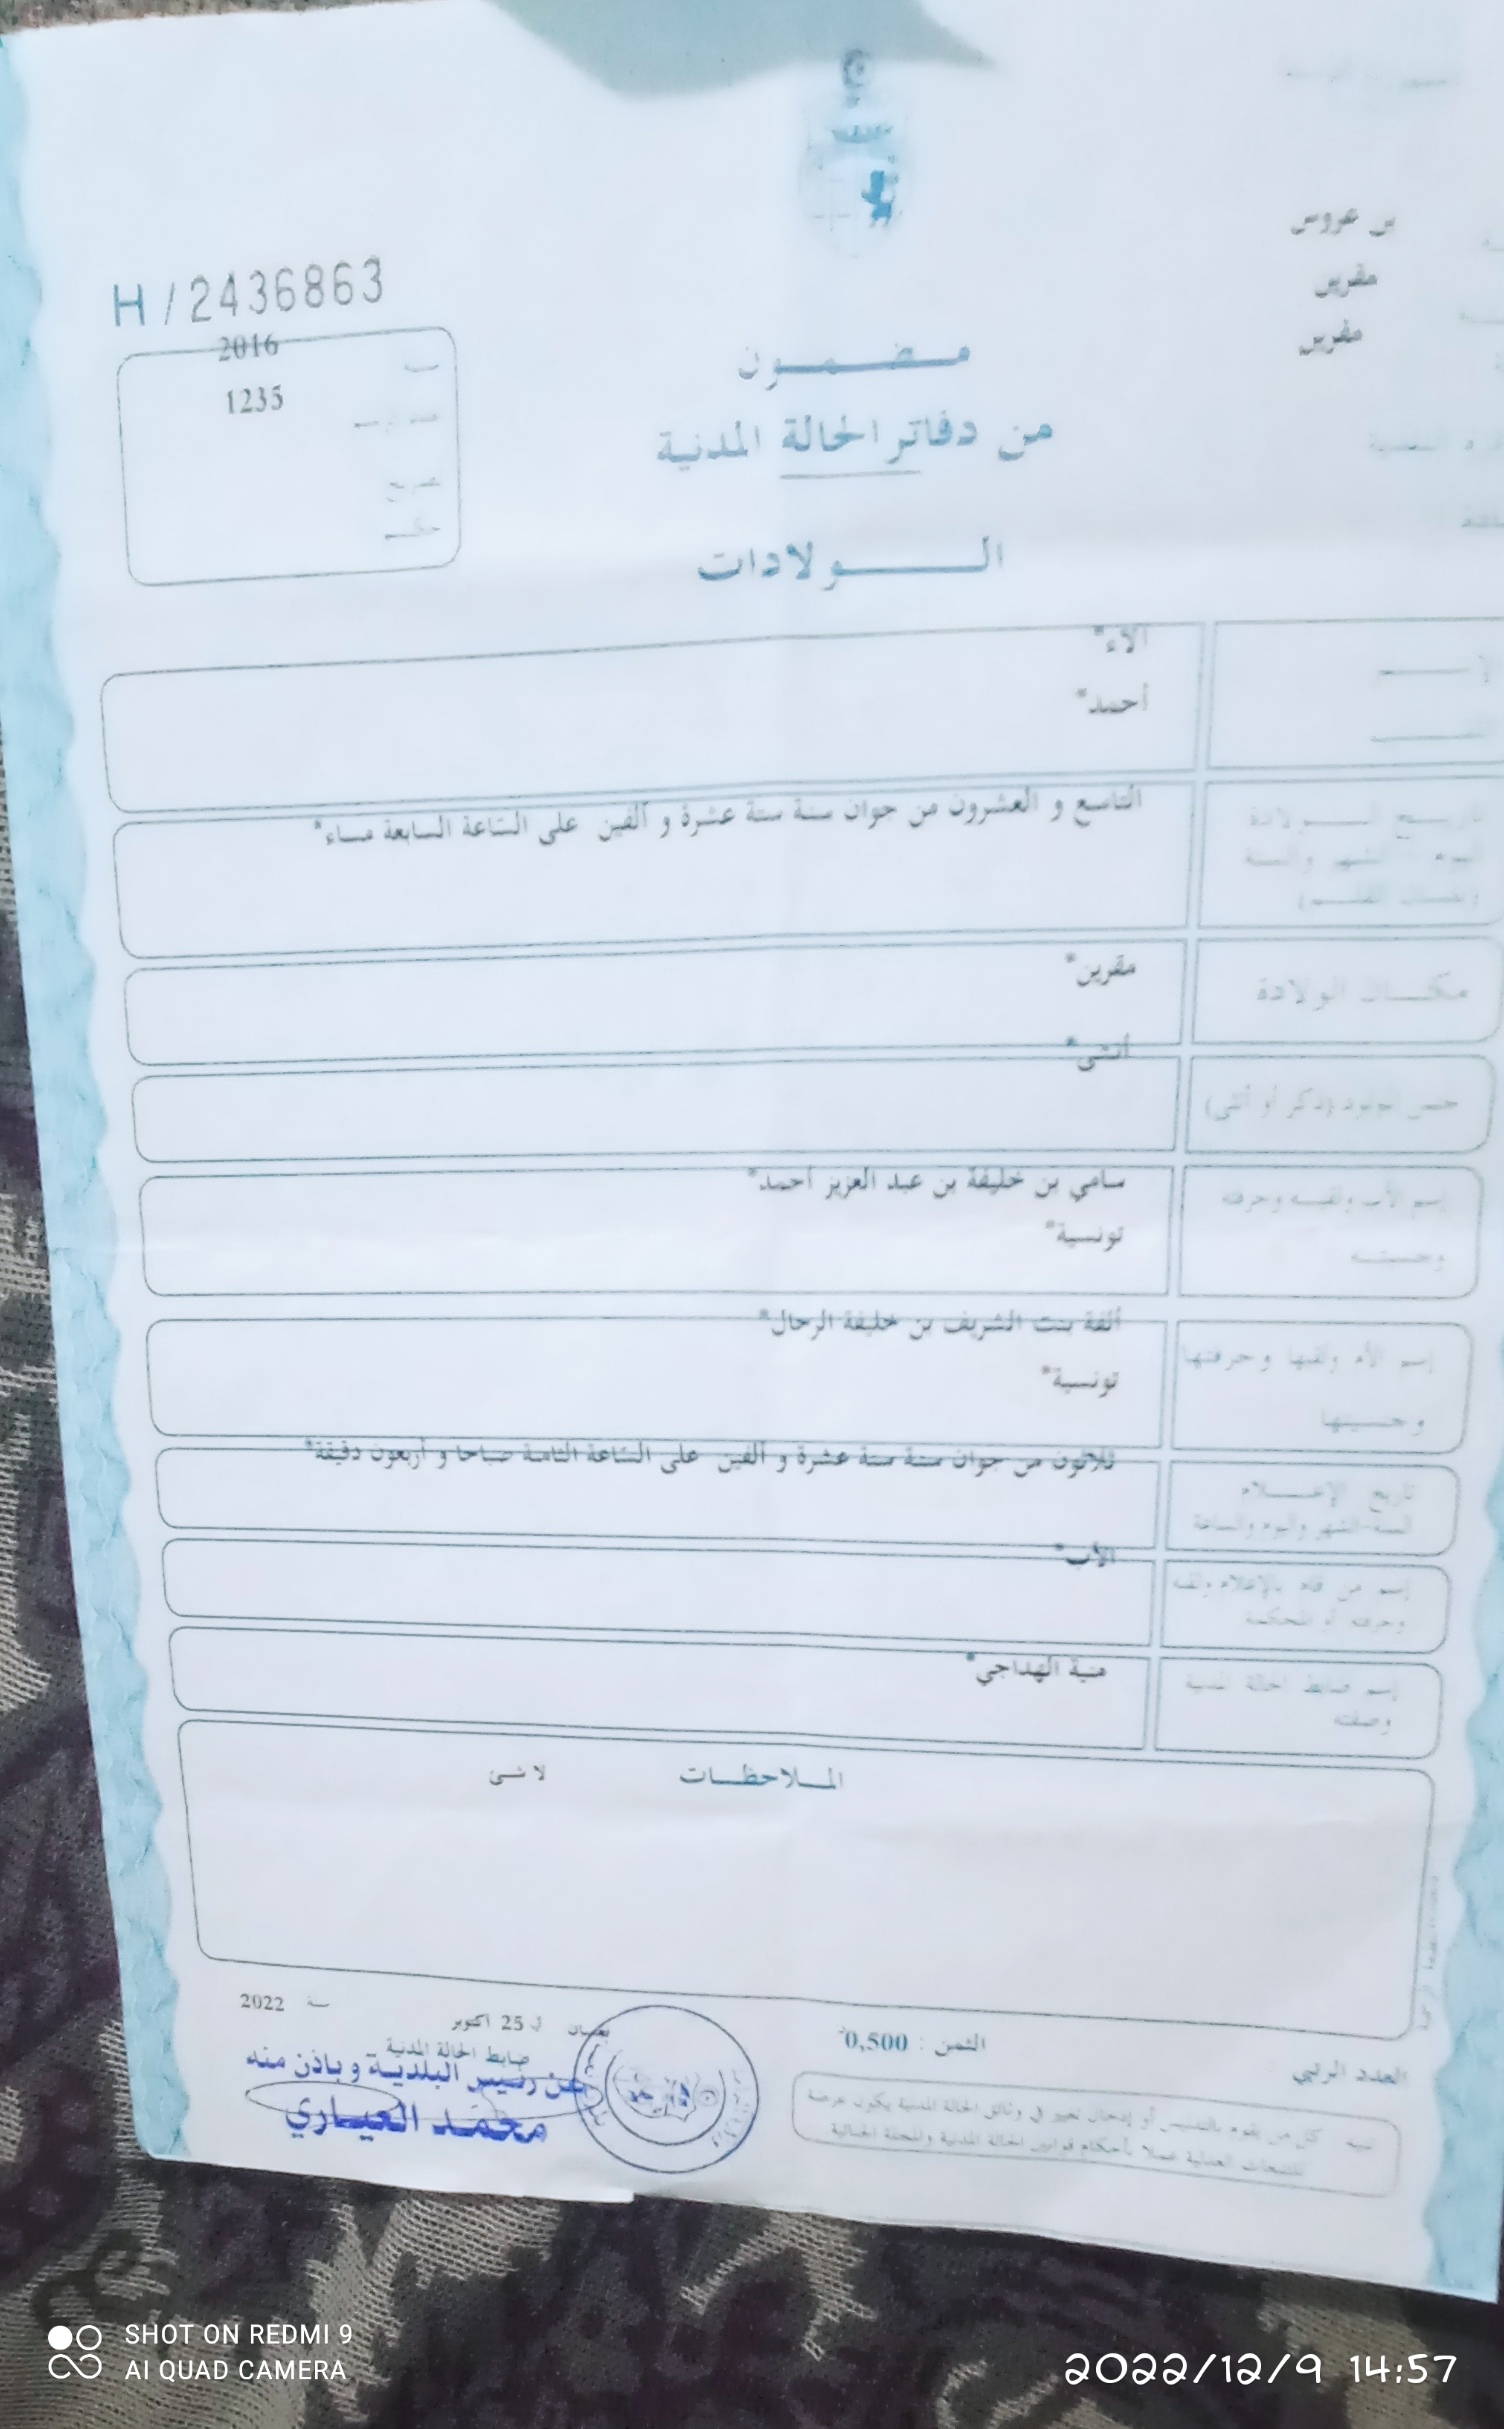 بن عروس
مقرين
مقرين
H/2436863
2016
1235
مضمون
من دفاتر الحالة المدنية
الولادات
ألاء*
أحمد*
التاسع و العشرون من جوان سنة ستة عشرة و ألفين على الساعة السابعة مساء*
مكان الولادة
مقرين*
جنس المولود (ذكر أو أنثى)
أنثى*
إسم الأب ولقبه وحرفته
وجنسيته
سامي بن خليفة بن عبد العزيز أحمد*
تونسية*
إسم الأم ولقبها وحرفتها
وجنسيتها
ألفة بنت الشريف بن خليفة الرحال*
تونسية*
تاريخ الإعلام
السنة-الشهر واليوم والساعة
ثلاثون من جوان سنة ستة عشرة و ألفين على الساعة الثامنة صباحا و أربعون دقيقة*
إسم من قام بالإعلام ولقبه
وحرفته أو المحكمة
الأب*
إسم ضابط الحالة المدنية
وصفته
منية الهداجي*
الملاحظات
لا شئ
الثمن : 0,500
ل 25 اكتوبر
سنة 2022
ضابط الحالة المدنية
عن رئيس البلدية و باذن منه
محمد العياري
العدد الرتبي
كل من يقوم بالتدليس أو إدخال تغيير في وثائق الحالة المدنية يكون عرضة
للتتبعات العدلية عملا بأحكام قوانين الحالة المدنية والمجلة الجنائية
SHOT ON REDMI 9
AI QUAD CAMERA
2022/12/9 14:57